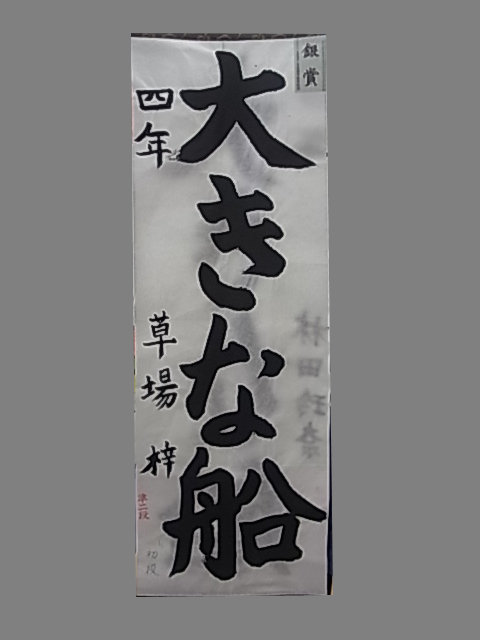 銀賞
大きな船
四年
草場 梓
準二段
初段